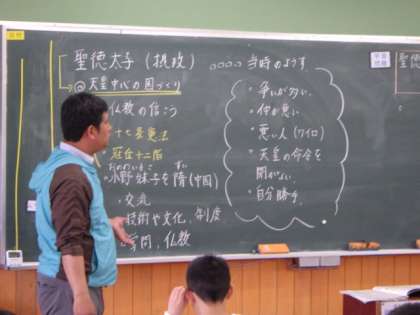 聖徳太子(摂政)
◎天皇中心の国づくり
仏教の信こう
十七条憲法
冠位十二階
おののいもこ ずい
小野妹子を隋(中国)
・交流
・技術や文化、制度
・学問、仏教
当時のようす
・争いが多い
・仲が悪い
・悪い人(ワイロ)
・天皇の命令を
聞かない
・自分勝手
学習
問題
聖徳